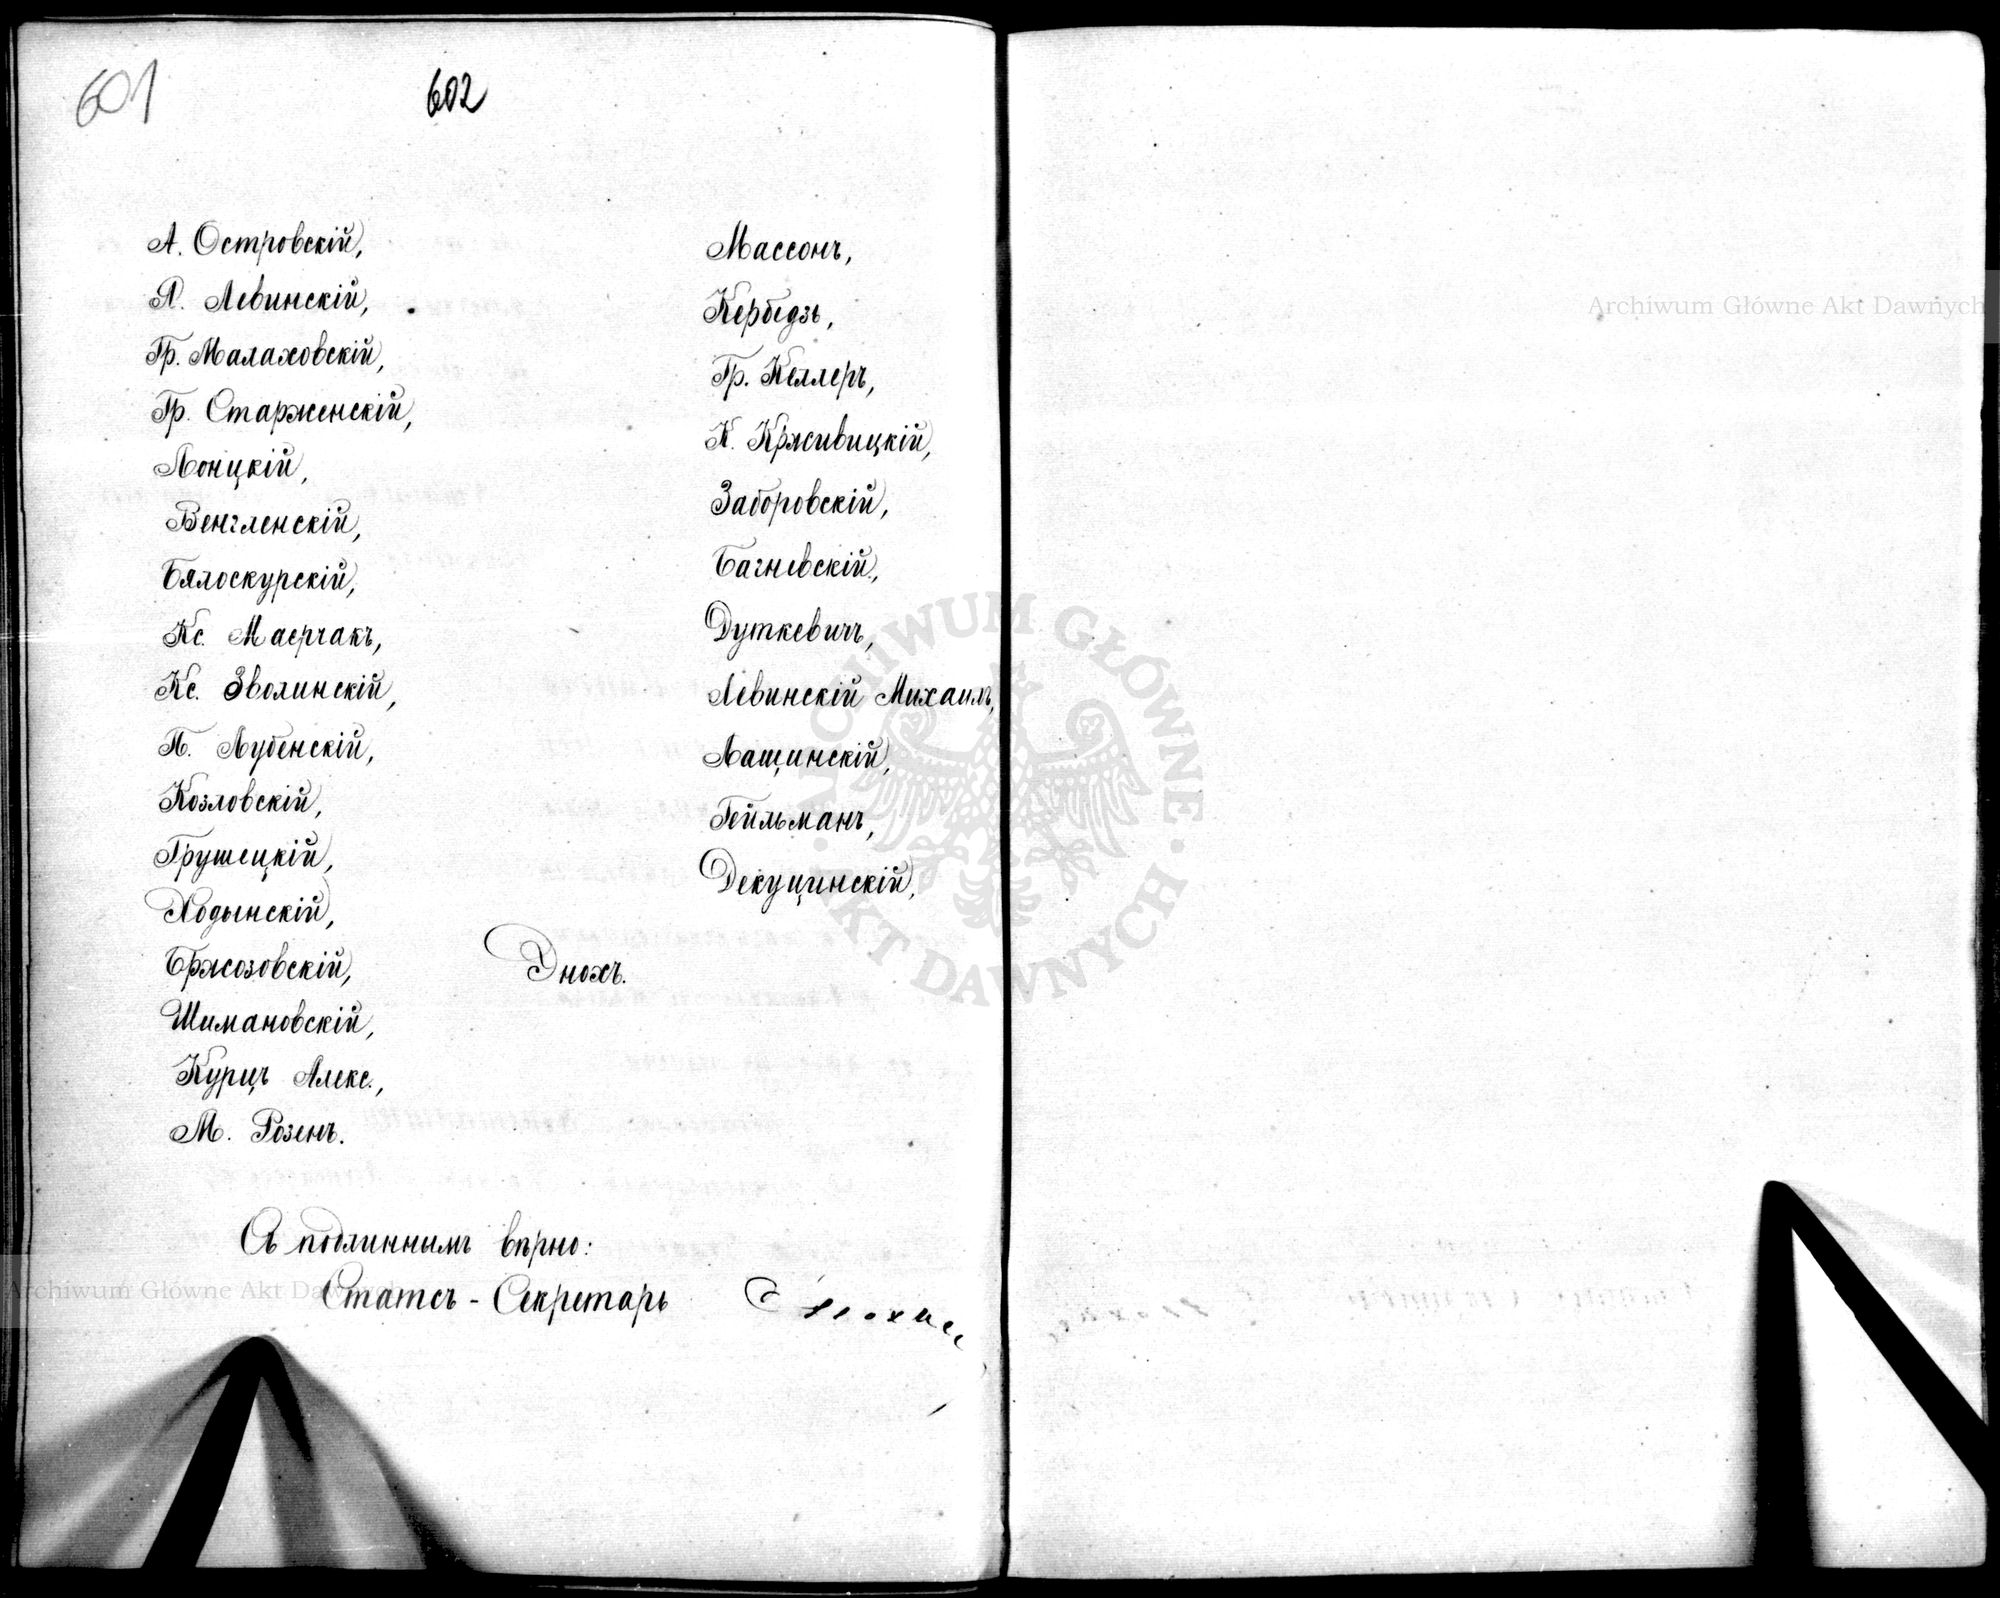 601
602
А. Островскій,
Л. Левинскій,
Гр. Малаховскій,
Гр. Старженскій,
Лонцкій,
Венгленскій,
Бялоскурскій,
Кс.
Кс. Зволинскій,
П. Лубенскій,
Козловскій,
Грушецкій,
Ходынскій,
Бржозовскій,
Шимановскій,
Курцъ Алекс.,
М. Розенъ.
Массонъ,
Кербедзъ,
Гр. Келлеръ,
К. Крживицкій,
Заборовскій,
Багневскій,
Дуткевичъ,
Левинскій Михаилъ,
Лащинскій,
Гейльманъ,
Декуцинскій,
Энохъ.
Съ подлиннымъ вѣрно:
Статсъ-Секретарь
Archiwum Główne Akt Dawnych
Archiwum Główne Akt Dawnych
ARCHIWUM GŁÓWNE AKT DAWNYCH